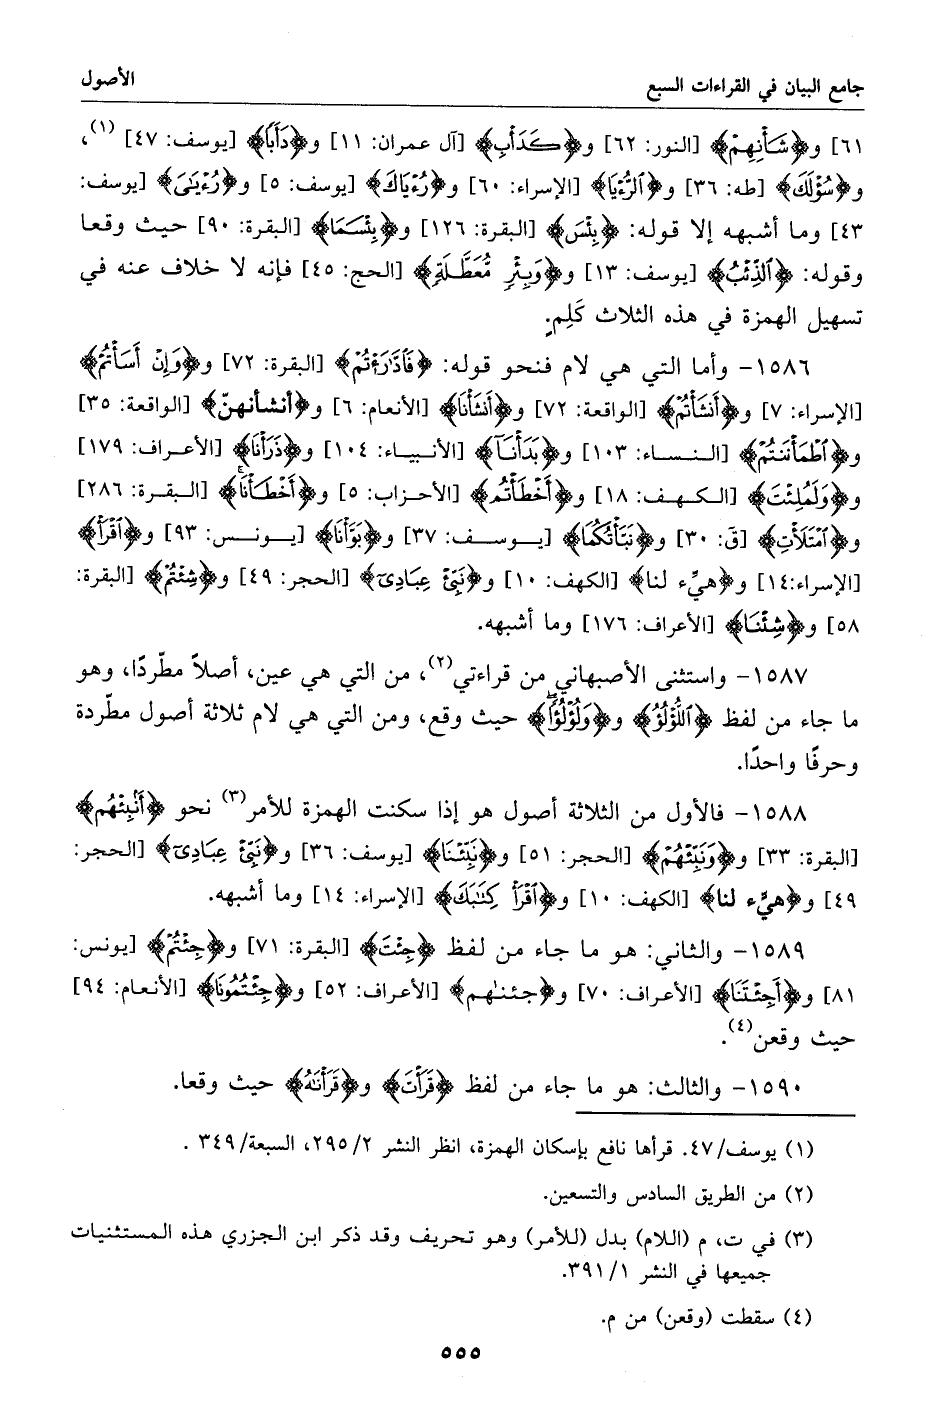 جامع البيان في القراءات السبع
الأصول
٦١] و﴿شَأْنِهِمْ﴾ [النور: ٦٢] و﴿كَدَأْبِ﴾ [آل عمران: ١١] و﴿دَأْبًا﴾ [يوسف: ٤٧] (١)،
و﴿سُؤْلَكَ﴾ [طه: ٣٦] و﴿ٱلرُّءْيَا﴾ [الإسراء: ٦٠] و﴿رُءْيَاكَ﴾ [يوسف: ٥] و﴿رُءْيَـٰىَ﴾ [يوسف:
٤٣] وما أشبهه إلا قوله: ﴿بِئْسَ﴾ [البقرة: ١٢٦] و﴿بِئْسَمَا﴾ [البقرة: ٩٠] حيث وقعا
وقوله: ﴿ٱلذِّئْبُ﴾ [يوسف: ١٣] و﴿وَبِئْرٍ مُّعَطَّلَةٍ﴾ [الحج: ٤٥] فإنه لا خلاف عنه في
تسهيل الهمزة في هذه الثلاث كَلِمٍ.
١٥٨٦- وأما التي هي لام فنحو قوله: ﴿فَٱدَّٰرَْٰٔتُمْ﴾ [البقرة: ٧٢] و﴿وَإِنْ أَسَأْتُمْ﴾
[الإسراء: ٧] و﴿أَنشَأْتُمْ﴾ [الواقعة: ٧٢] و﴿أَنشَأْنَا﴾ [الأنعام: ٦] و﴿أنشأنهنّ﴾ [الواقعة: ٣٥]
و﴿ٱطْمَأْنَنتُمْ﴾ [النساء: ١٠٣] و﴿بَدَأْنَآ﴾ [الأنبياء: ١٠٤] و﴿ذَرَأْنَا﴾ [الأعراف: ١٧٩]
و﴿وَلَمُلِئْتَ﴾ [الكهف: ١٨] و﴿أَخْطَأْتُم﴾ [الأحزاب: ٥] و﴿أَخْطَأْنَا﴾ [البقرة: ٢٨٦]
و﴿ٱمْتَلَأْتِ﴾ [قَ: ٣٠] و﴿نَبَّأْتُكُمَا﴾ [يوسف: ٣٧] و﴿بَوَّأْنَا﴾ [يونس: ٩٣] و﴿ٱقْرَأْ﴾
[الإسراء:١٤] و﴿هيِّء لنا﴾ [الكهف: ١٠] و﴿نَبِّئْ عِبَادِىٓ﴾ [الحجر: ٤٩] و﴿شِئْتُمْ﴾ [البقرة:
٥٨] و﴿شِئْنَا﴾ [الأعراف: ١٧٦] وما أشبهه.
١٥٨٧- واستثنى الأصبهاني من قراءتي(٢)، من التي هي عين، أصلاً مطّردًا، وهو
ما جاء من لفظ ﴿ٱللُّؤْلُؤُ﴾ و﴿وَلُؤْلُؤًا﴾ حيث وقع، ومن التي هي لام ثلاثة أصول مطّردة
وحرفًا واحدًا.
١٥٨٨- فالأول من الثلاثة أصول هو إذا سكنت الهمزة للأمر(٣) نحو ﴿أَنۢبِئْهُم﴾
[البقرة: ٣٣] و﴿وَنَبِّئْهُمْ﴾ [الحجر: ٥١] و﴿نَبِّئْنَا﴾ [يوسف: ٣٦] و﴿نَبِّئْ عِبَادِىٓ﴾ [الحجر:
٤٩] و﴿هيِّء لنا﴾ [الكهف: ١٠] و﴿ٱقْرَأْ كِتَـٰبَكَ﴾ [الإسراء: ١٤] وما أشبهه.
١٥٨٩- والثاني: هو ما جاء من لفظ ﴿جِئْتَ﴾ [البقرة: ٧١] و﴿جِئْتُمْ﴾ [يونس:
٨١] و﴿أَجِئْتَنَا﴾ [الأعراف: ٧٠] و﴿جئنٰهم﴾ [الأعراف: ٥٢] و﴿جِئْتُمُونَا﴾ [الأنعام: ٩٤]
حيث وقعن(٤).
١٥٩٠- والثالث: هو ما جاء من لفظ ﴿قَرَأْتَ﴾ و﴿قَرَأْنَـٰهُ﴾ حيث وقعا.
(١) يوسف/٤٧. قرأها نافع بإسكان الهمزة، انظر النشر ٢٩٥/٢، السبعة/٣٤٩ .
(٢) من الطريق السادس والتسعين.
(٣) في ت، م (اللام) بدل (للأمر) وهو تحريف وقد ذكر ابن الجزري هذه المستثنيات
جميعها في النشر ٣٩١/١.
(٤) سقطت (وقعن) من م.
٥٥٥